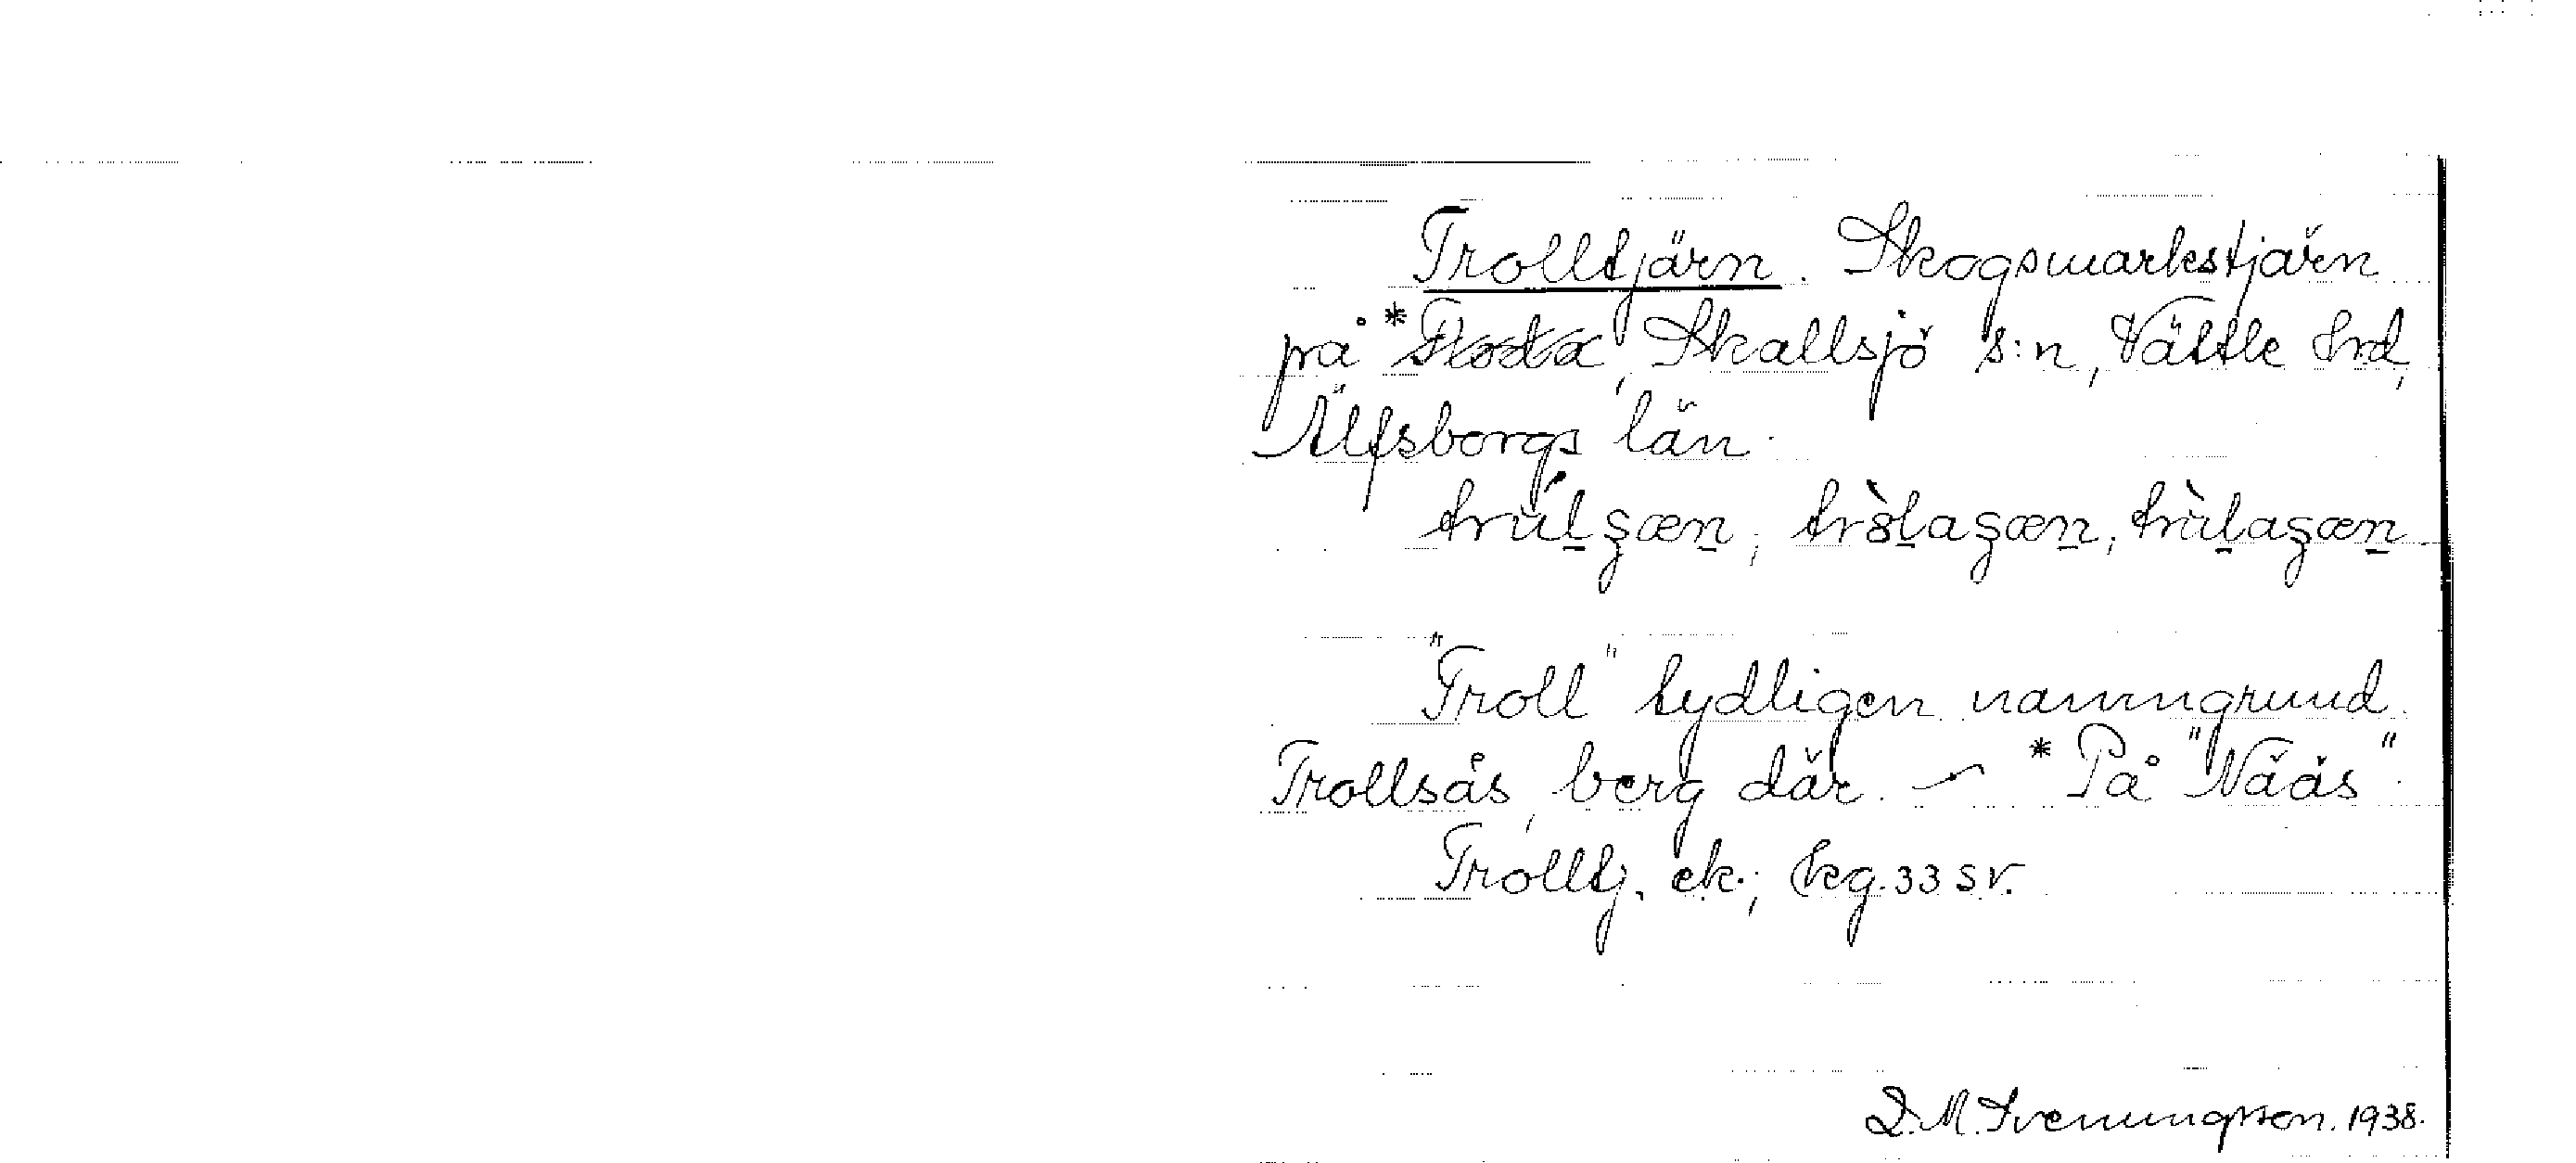 Trolltjärn. Skogsmarkstjärn
på * Floda, Skallsjö s:n, Vättle hrd,
Älfsborgs län.
trúlʂæn; tròlaʂæn; trùlaʂæn.
"Troll" tydligen namngrund.
Trollsås, berg där. — * På "Nääs".
Trolltj. ek.; kg. 33 sv.
D. M. Svenungsson. 1938.